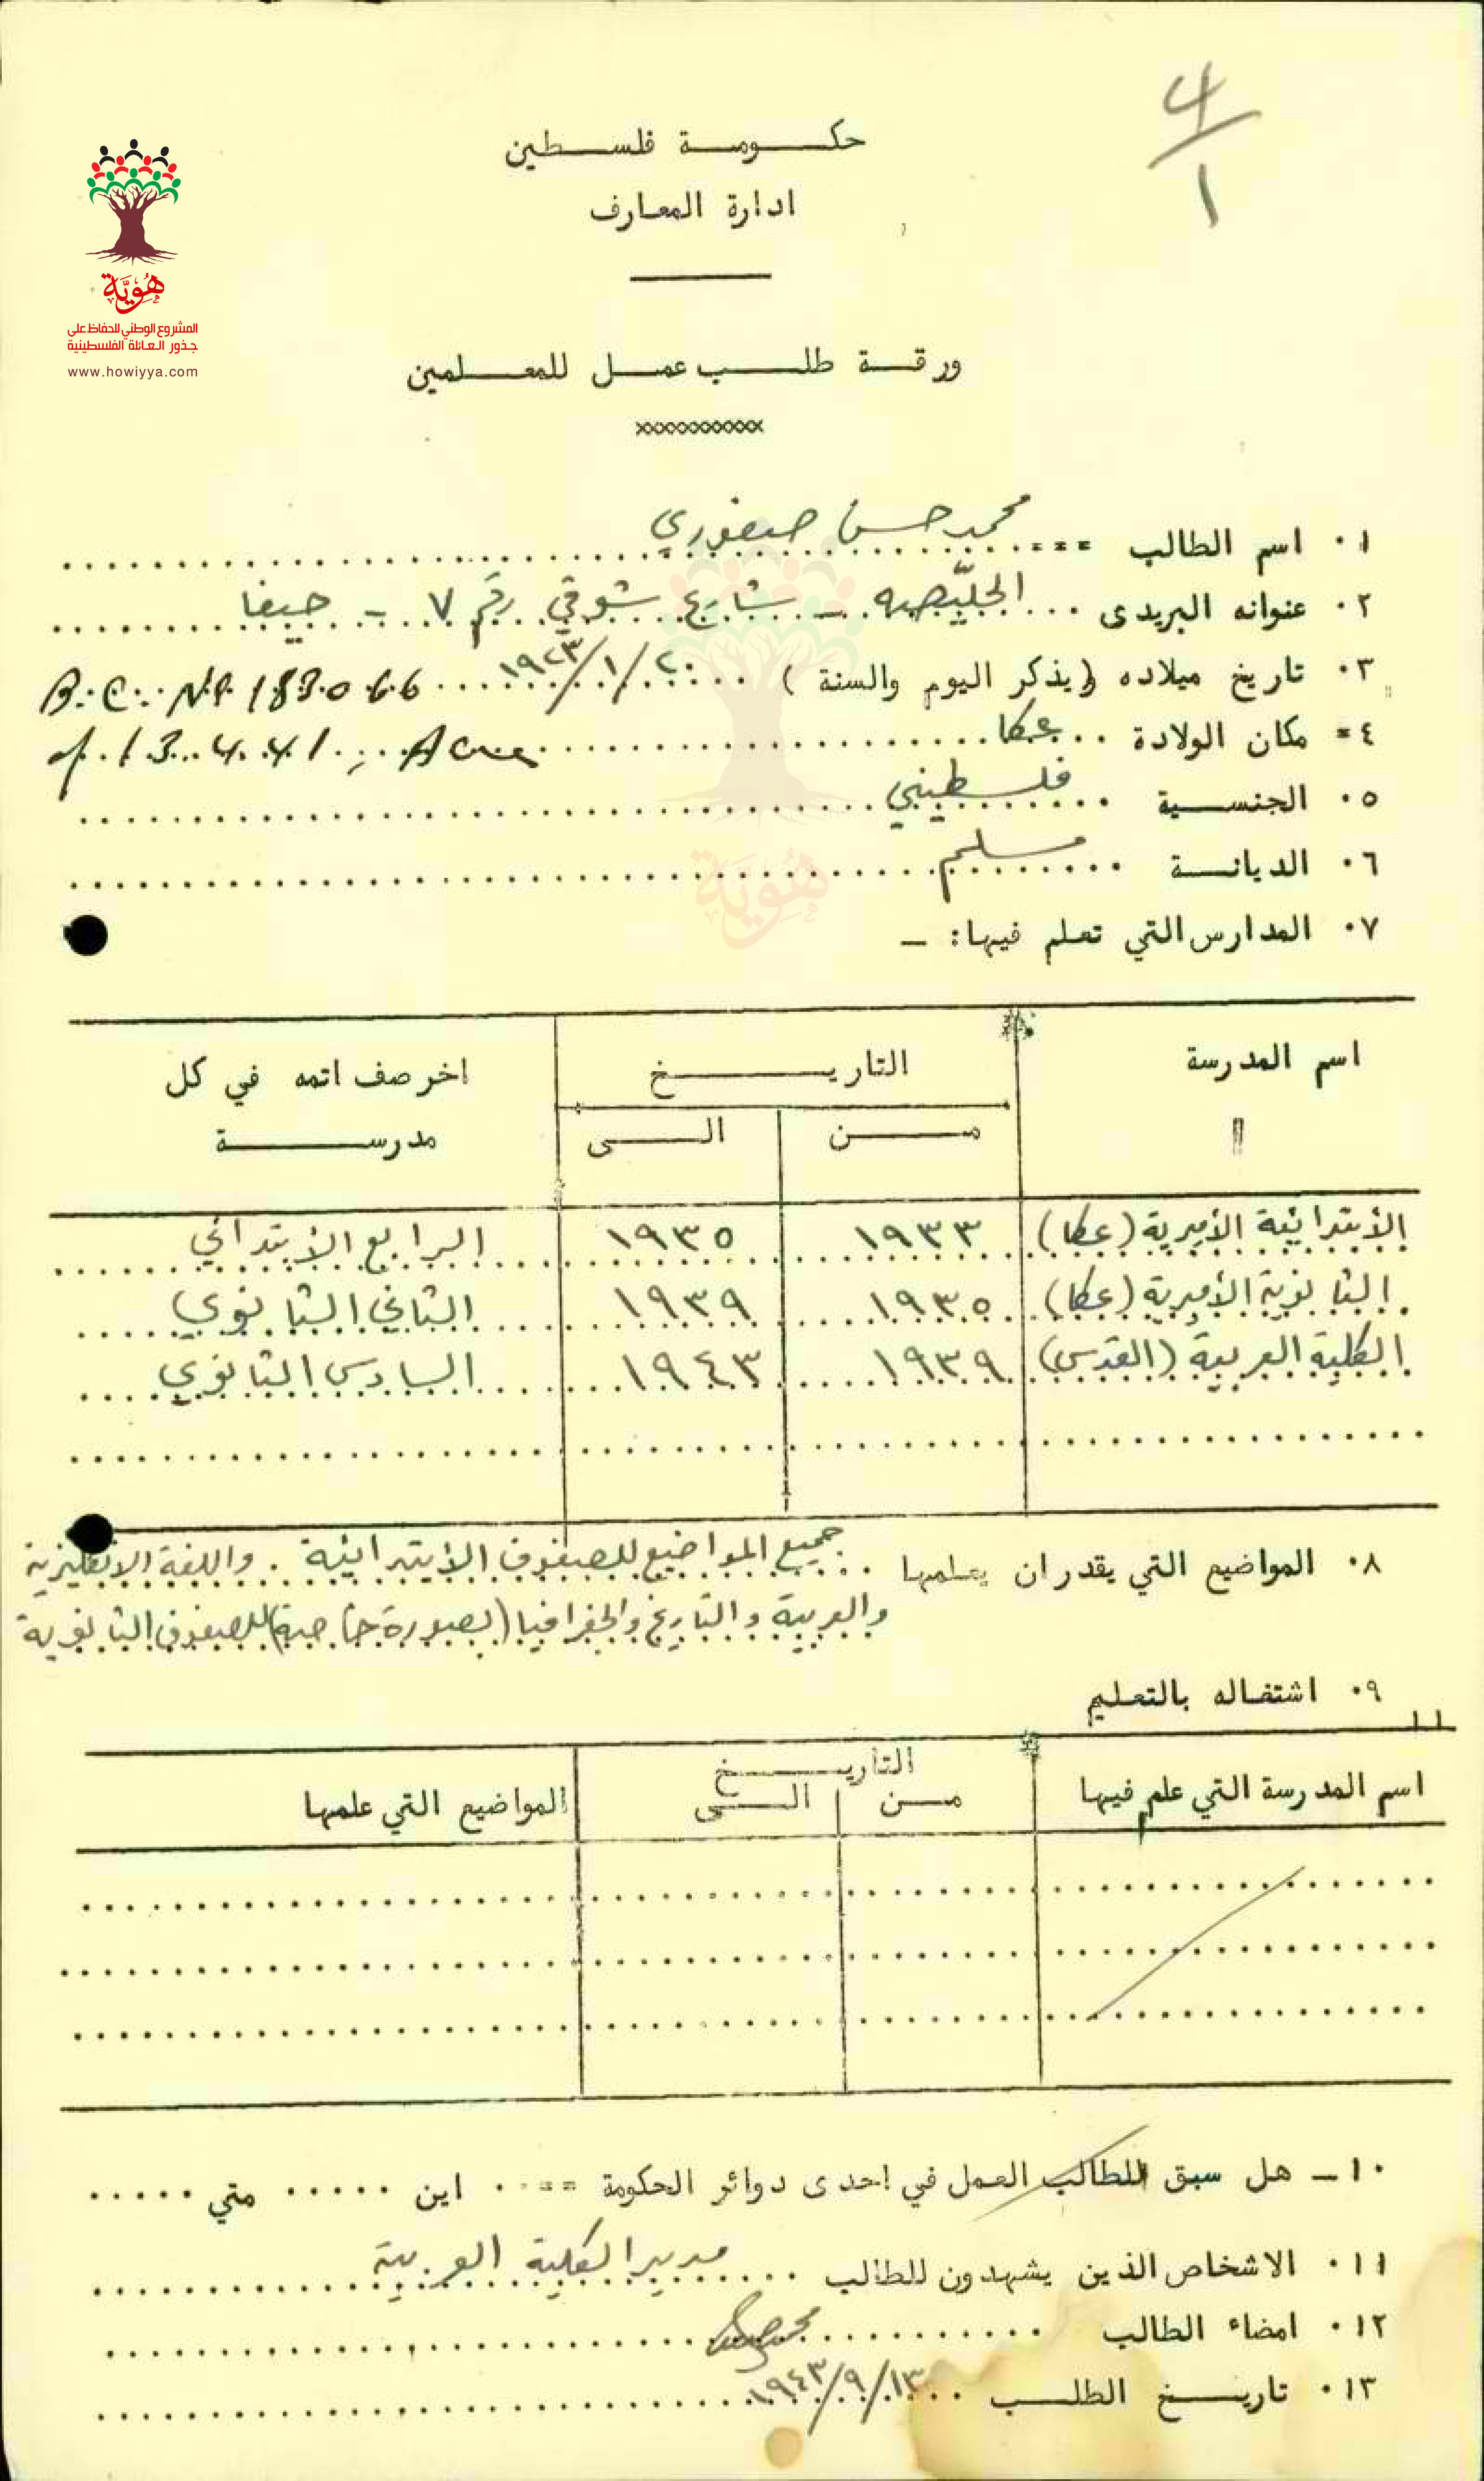 ٤/١
حكومة فلسطين
ادارة المعارف
هُوِيَّة
المشروع الوطني للحفاظ على
جذور العائلة الفلسطينية
www.howiyya.com
ورقة طلب عمل للمعلمين
xxxxxxxxxxx
١٠ اسم الطالب === محمد حسن صفوري
٢٠ عنوانه البريدى ... الحليّصه - شارع شوقي رقم ٧ - حيفا
٣٠ تاريخ ميلاده (يذكر اليوم والسنة) ٢٠/١/١٩٢٣ B.C. No 183066
٤= مكان الولادة ... عكا of 13.4.41, Acre
٥٠ الجنسية ... فلسطيني
٦٠ الديانة ... مسلم
هُوِيَّة
٧٠ المدارس التي تعلم فيها: -
اسم المدرسة التاريخ اخر صف اتمه في كل
" من الى مدرسة
الأبتدائية الأميرية (عكا) ١٩٣٣ ١٩٣٥ الرابع الأبتدائي
الثانوية الأميرية (عكا) ١٩٣٥ ١٩٣٩ الثاني الثانوي
الكلية العربية (القدس) ١٩٣٩ ١٩٤٣ السادس الثانوي
٨٠ المواضيع التي يقدر ان يعلمها ... جميع المواضيع للصفوف الأبتدائية . واللغة الانكليزية
والعربية والتاريخ والجغرافيا (بصورة خاصة) للصفوف الثانوية
٩٠ اشتغاله بالتعليم
اسم المدرسة التي علم فيها التاريخ المواضيع التي علمها
من الى
١٠- هل سبق للطالب العمل في احدى دوائر الحكومة ==٠٠ اين ..... متي .....
١١٠ الاشخاص الذين يشهدون للطالب ... مدير الكلية العربية
١٢٠ امضاء الطالب
١٣٠ تاريخ الطلب ... ١٣/٩/١٩٤٣